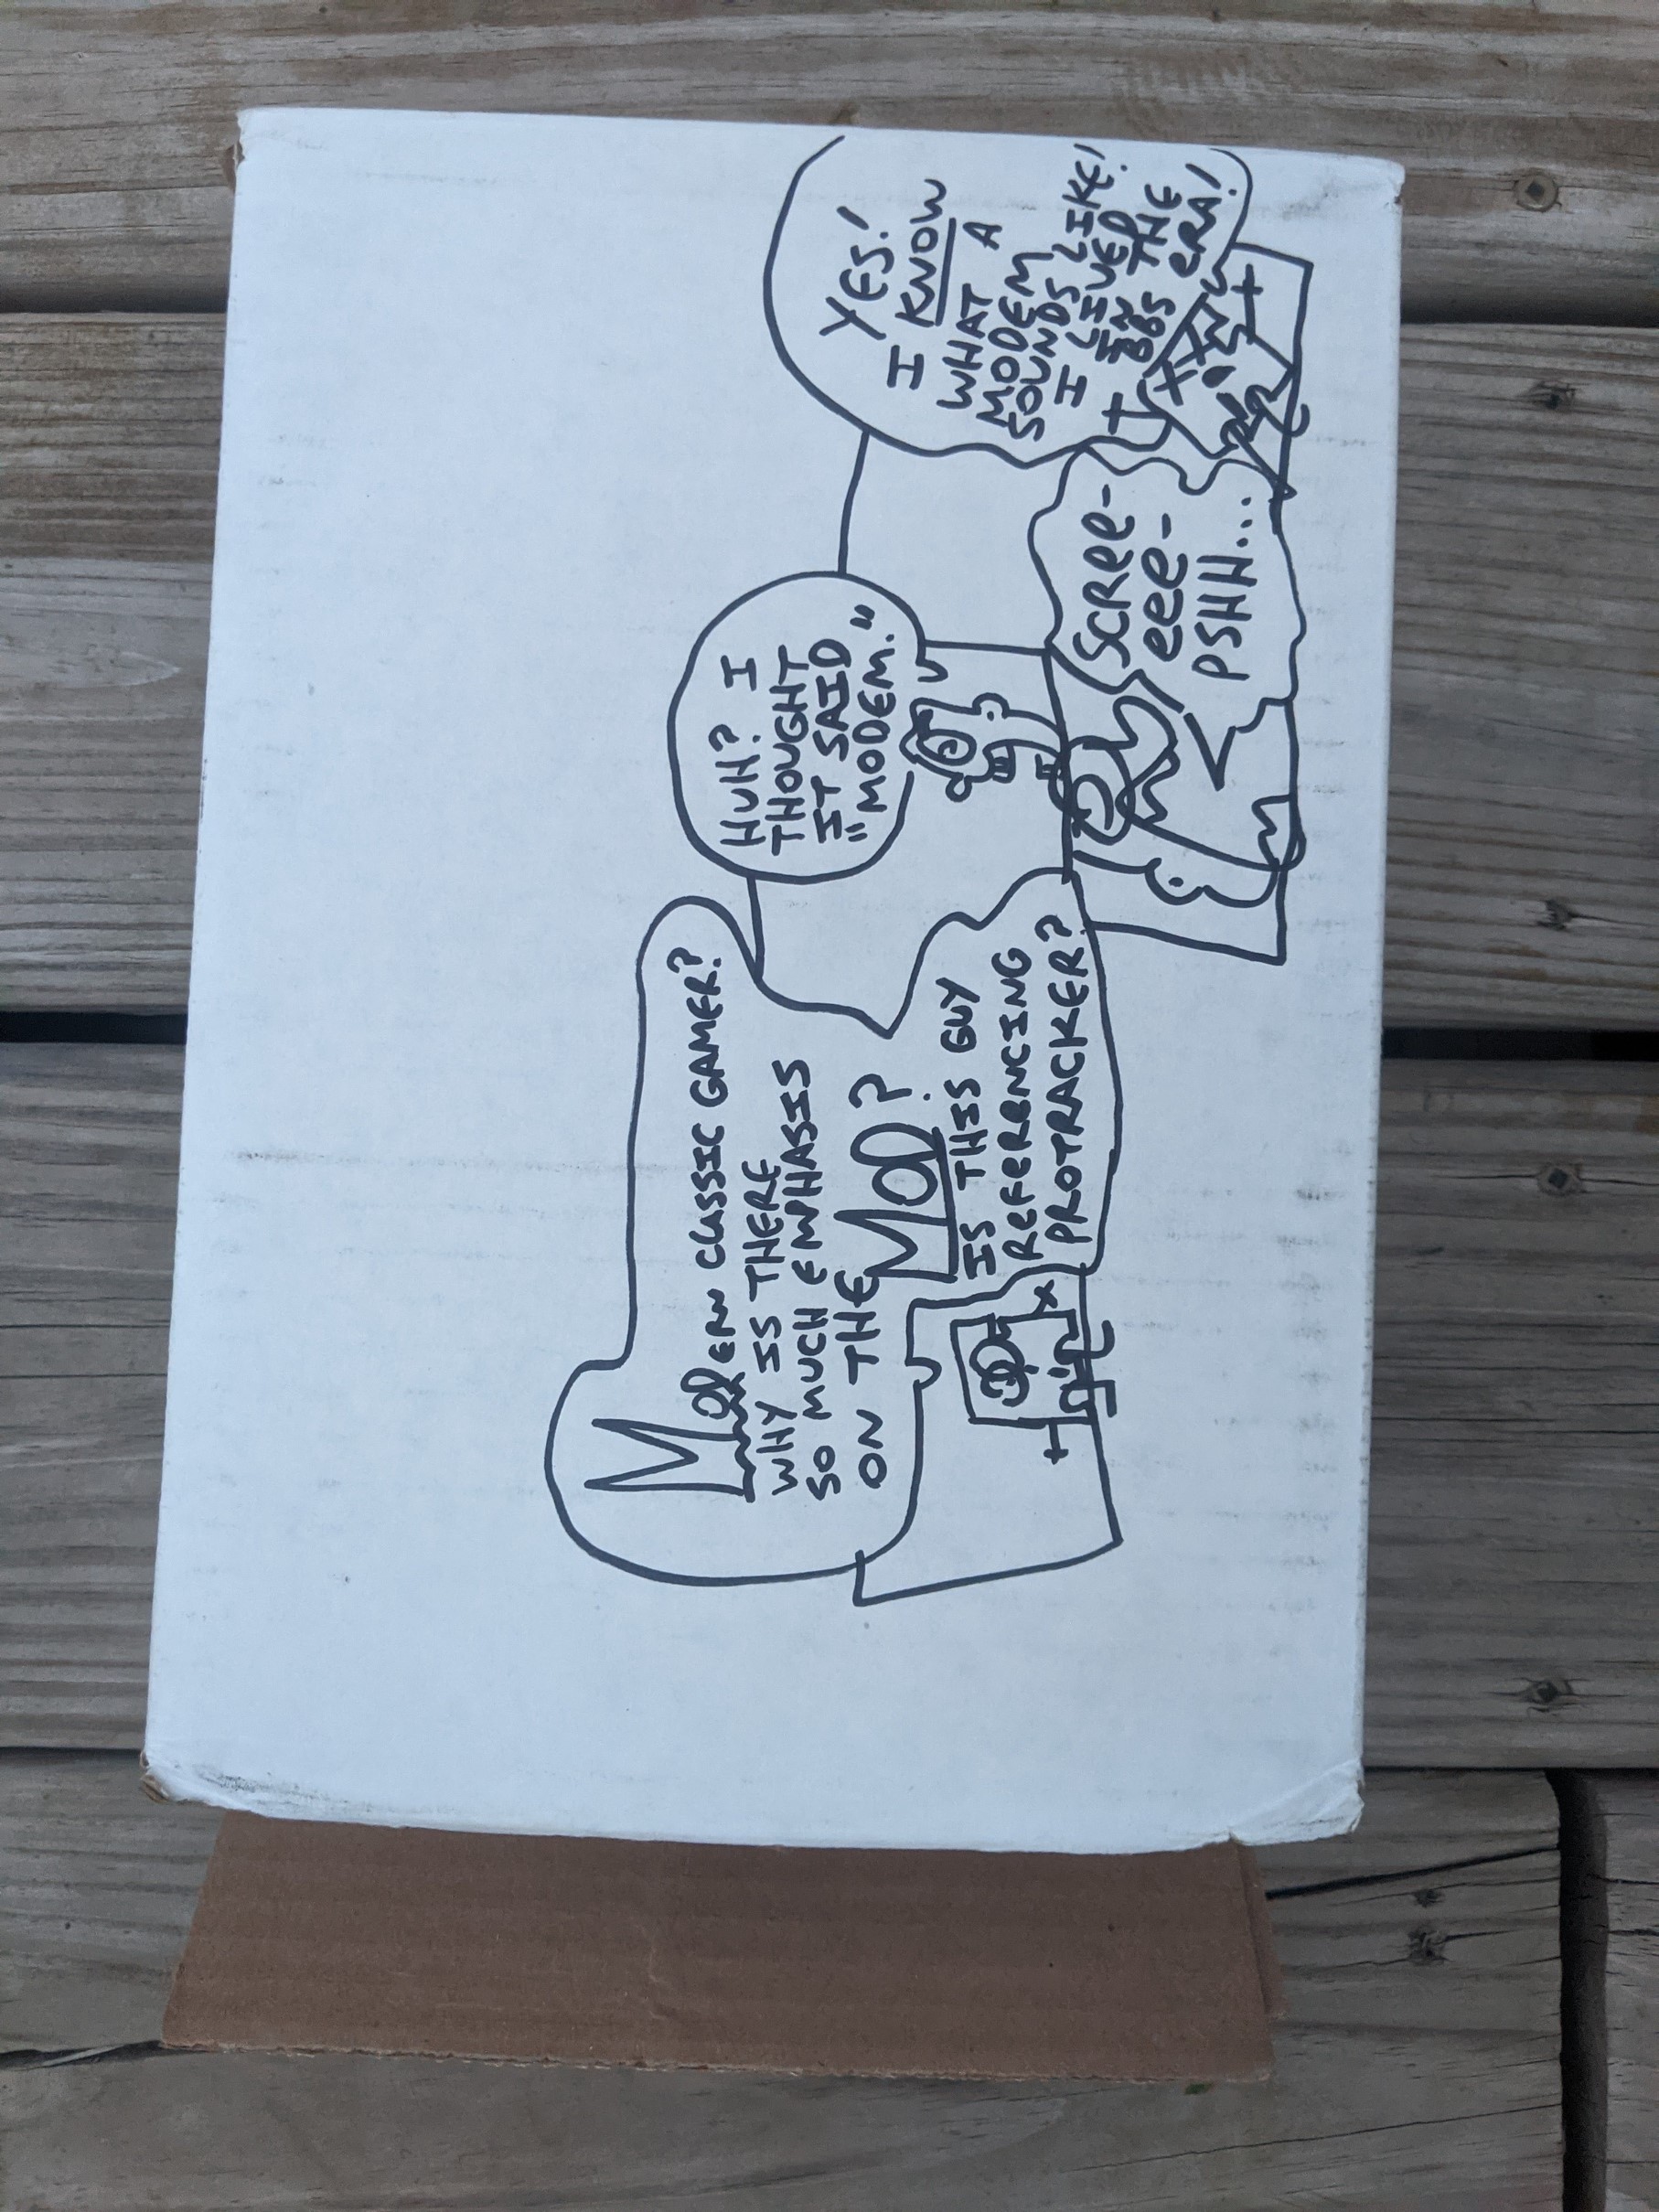 MODERN CLASSIC GAMER?
WHY IS THERE
SO MUCH EMPHASIS
ON THE MOD?
IS THIS GUY
REFERENCING
PROTRACKER?
HUH? I
THOUGHT
IT SAID
"MODEM."
SCREE-
EEE-
PSHH...
YES!
I KNOW
WHAT A
MODEM
SOUNDS LIKE!
I LIVED
IN THE
BBS ERA!